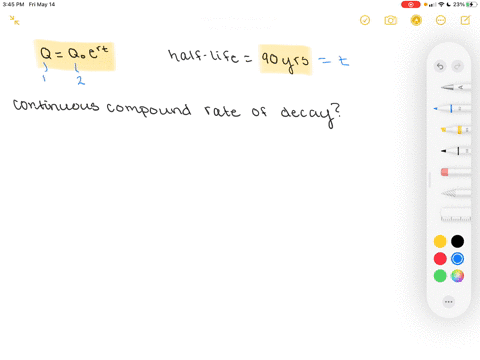 3:45 PM Fri May 14
23%
Q = Q₀ eʳᵗ
half-life = 90 yrs = t
1 2
continuous compound rate of decay?